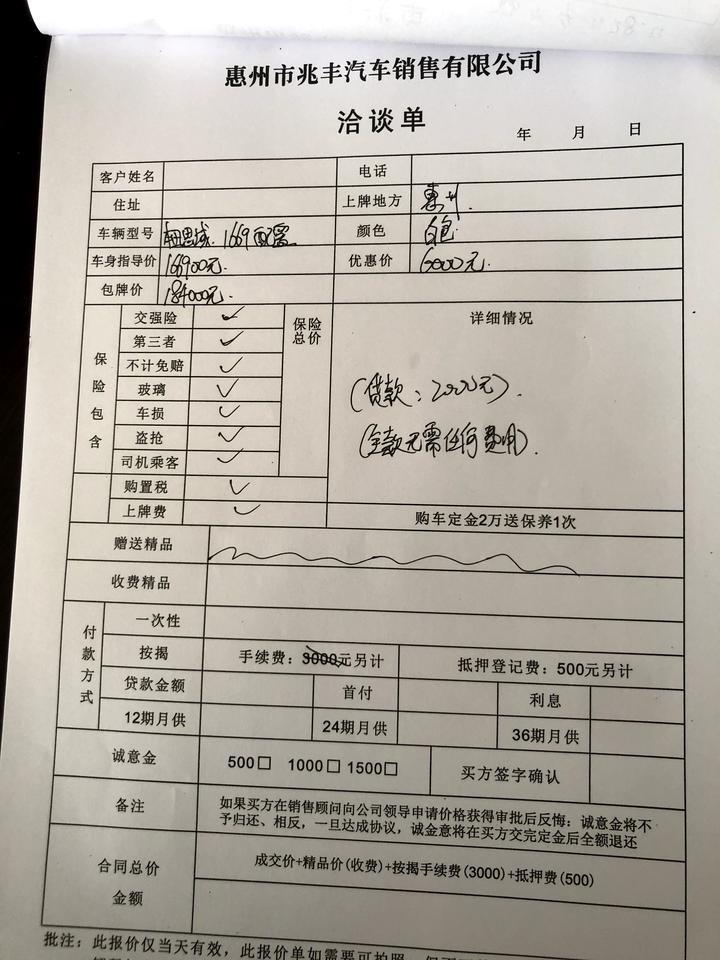 惠州市兆丰汽车销售有限公司
洽谈单
年 月 日
客户姓名 电话
住址 上牌地方 惠州.
车辆型号 思域. 1669配置 颜色 白色
车身指导价 166900元. 优惠价 6000元.
包牌价 184000元.
保险包含
交强险 ✓ 保险总价 详细情况
第三者 ✓
不计免赔 ✓
玻璃 ✓ (贷款: 2000元).
车损 ✓
盗抢 ✓ (全款无需任何费用).
司机乘客 ✓
购置税 ✓
上牌费 ✓ 购车定金2万送保养1次
赠送精品
收费精品
付款方式
一次性
按揭 手续费:3000元另计 抵押登记费:500元另计
贷款金额 首付 利息
12期月供 24期月供 36期月供
诚意金 500□ 1000□ 1500□ 买方签字确认
备注 如果买方在销售顾问向公司领导申请价格获得审批后反悔:诚意金将不
予归还、相反,一旦达成协议,诚金意将在买方交完定金后全额退还
合同总价 成交价+精品价(收费)+按揭手续费(3000)+抵押费(500)
金额
批注:此报价仅当天有效,此报价单如需要可拍照,